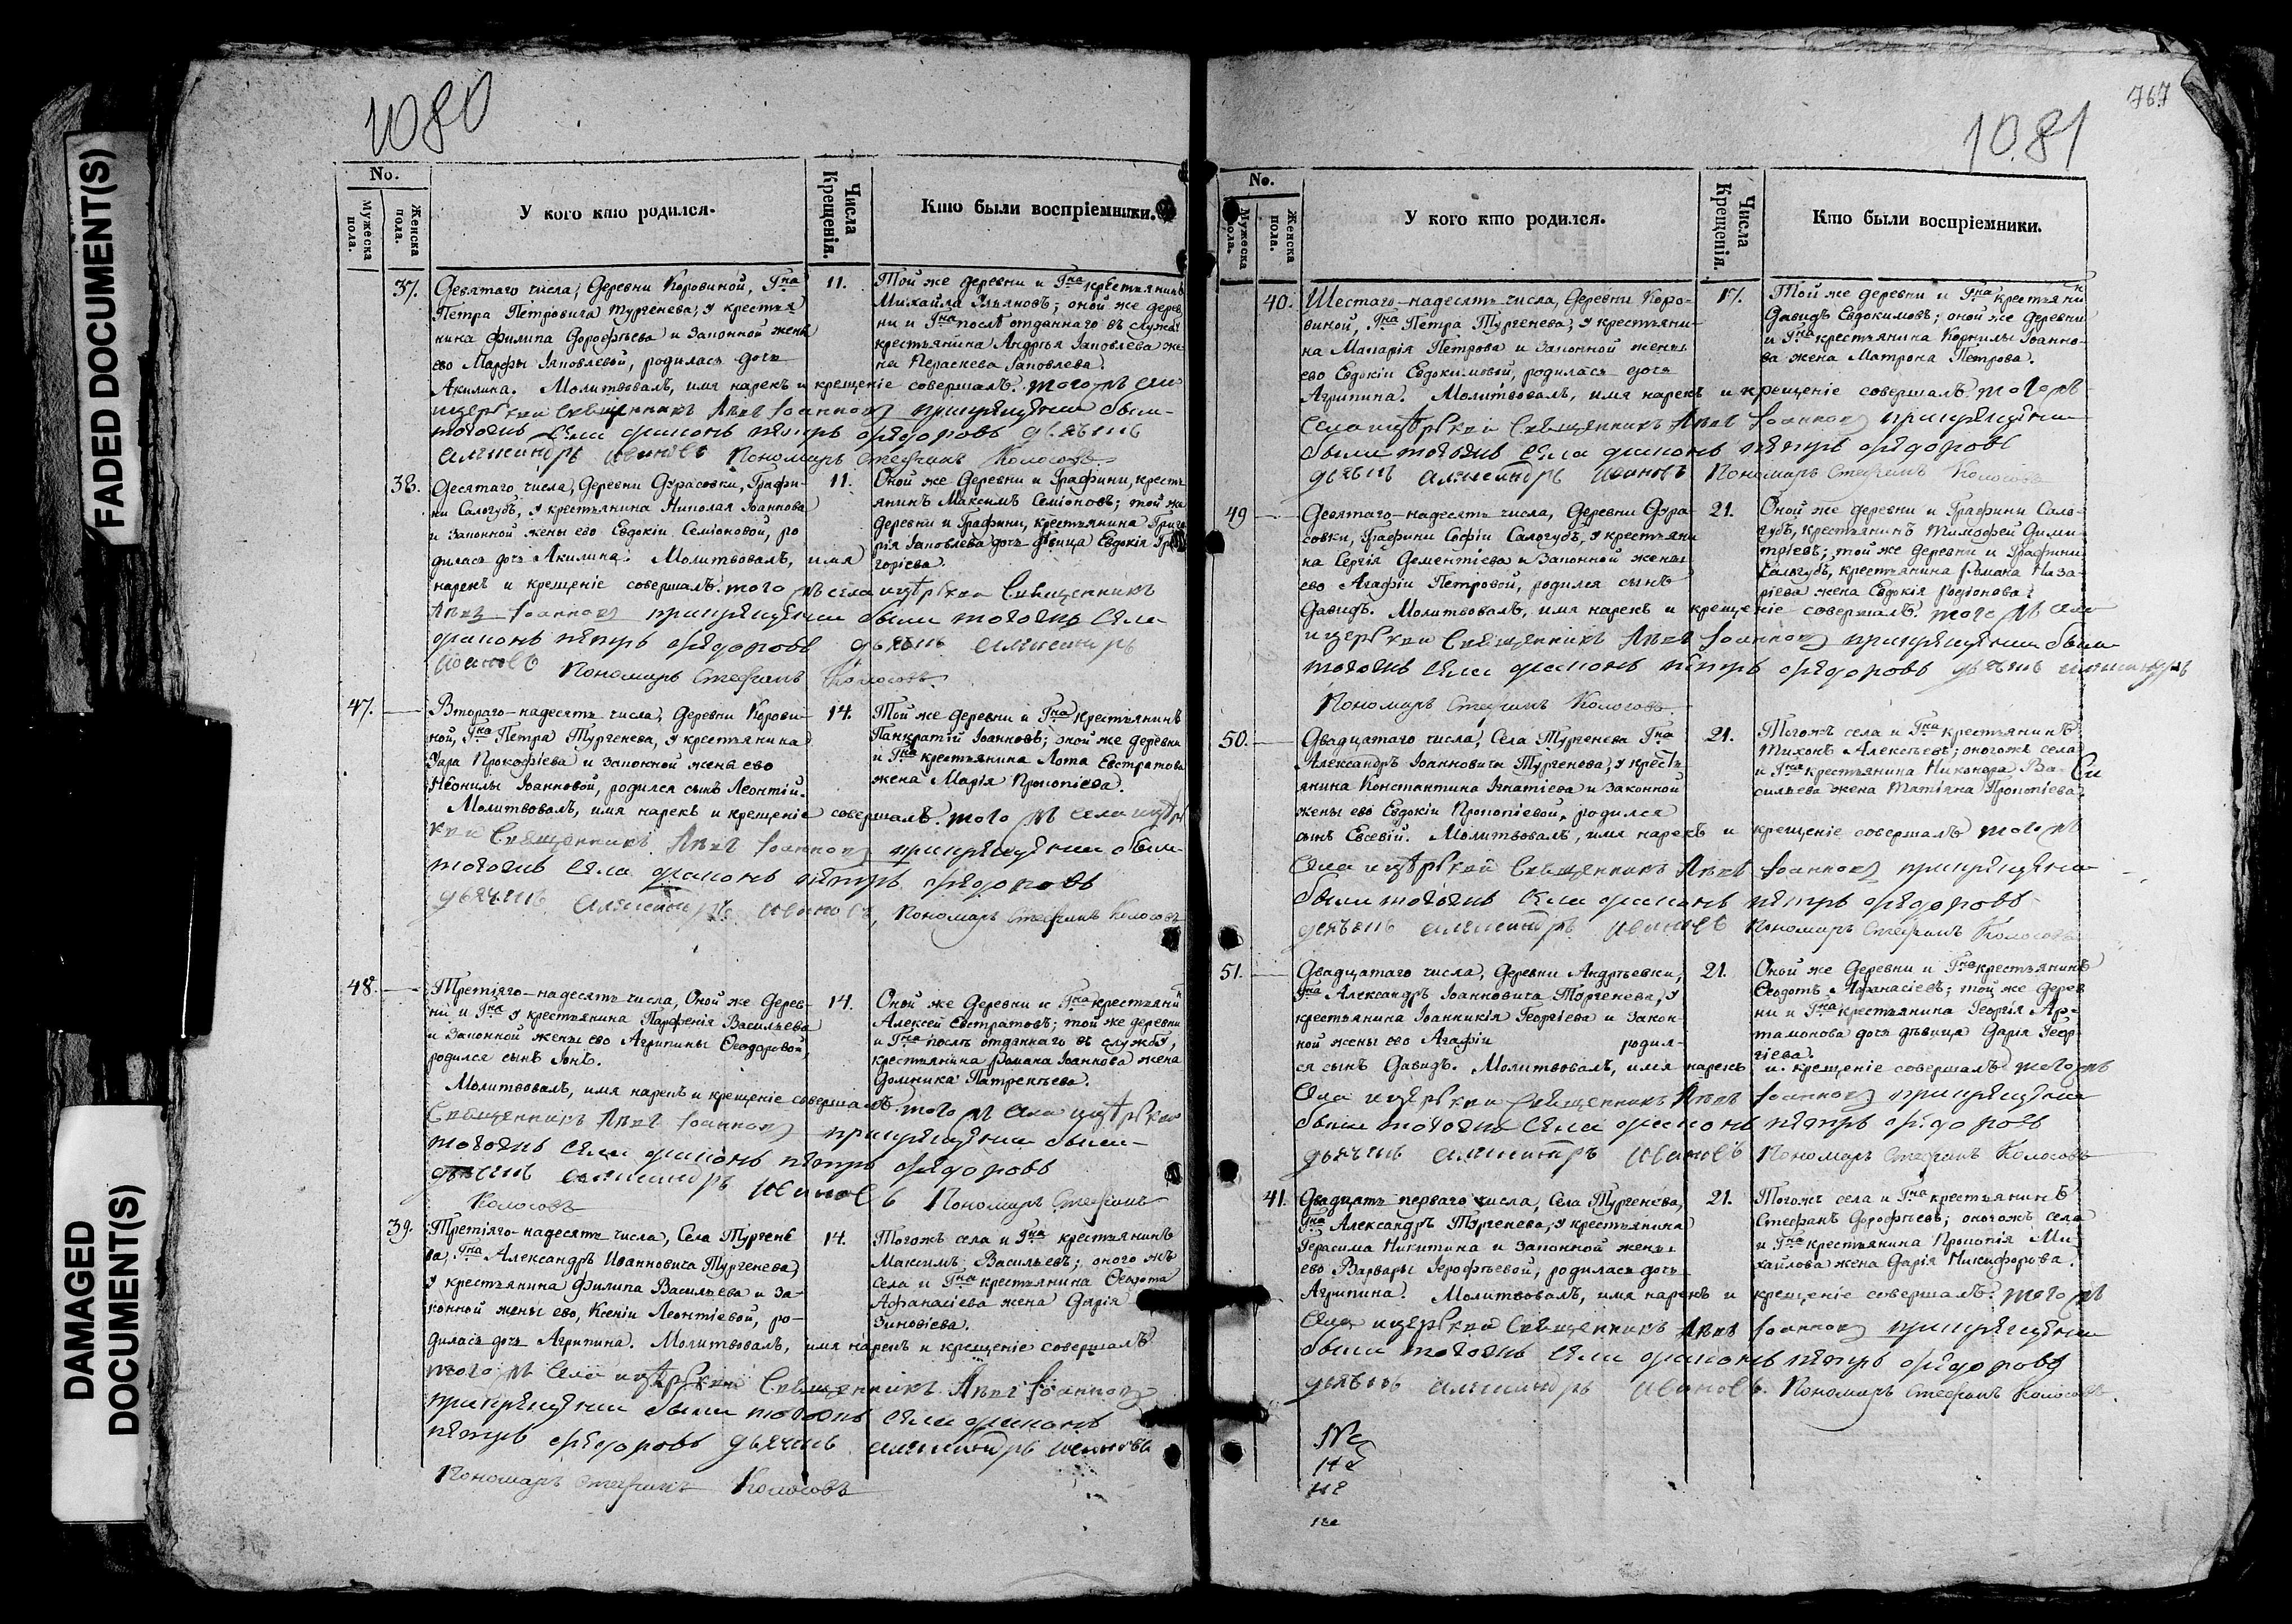 FADED DOCUMENT(S)
DAMAGED
DOCUMENT(S)
1080
No.
Мужеска пола.
Женска пола.
У кого кто родился.
Числа Крещенія.
Кто были воспріемники.
37.
Девятаго числа, Деревни Коровиной, Гна
Петра Петровича Тургенева, у крестья
нина Филипа Дорофѣева и Законной жены
ево Марфы Іаковлевой, родилась дочь
Акилина. Молитвовалъ, имя нарекъ и крещеніе совершалъ. того жъ села
Священникъ Іоанновъ причетники были
тогожъ села діаконъ петръ федоровъ дьячекъ
александръ ивановъ Пономарь Стефанъ Колосовъ
11.
Той же деревни и Гна крестьянинъ
Михайла Ульяновъ; оной же дерев
ни и Гна послѣ отданнаго въ службу
крестьянина Андрея Іаковлева же
на Параскева Іаковлева.
38.
Десятаго числа, Деревни Дурасовки, Графи-
ни Салогубъ, у крестьянина Николая Іоаннова
и законной жены его Евдокіи Семіоновой, ро
дилась дочь Акилина. Молитвовалъ, имя
нарекъ и крещеніе совершалъ. того жъ села Священникъ
Іоанновъ были тогожъ села
діаконъ петръ федоровъ дьячекъ александръ
ивановъ Пономарь Стефанъ Колосовъ.
11.
Оной же Деревни и Графини, кресть
янинъ Максимъ Семіоновъ; той же
деревни и Графини, крестьянина Григо
рія Іаковлева дочь дѣвица Евдокія Гри
горіева.
47.
Втораго-надесять числа, Деревни Корови-
ной, Гна Петра Тургенева, у крестьянина
Уара Прокофіева и законной жены ево
Неонилы Іоанновой, родился сынъ Леонтій.
Молитвовалъ, имя нарекъ и крещеніе совершалъ. того жъ села
Священникъ Іоанновъ были
тогожъ села діаконъ петръ федоровъ
дьячекъ александръ ивановъ, Пономарь Стефанъ Колосовъ
14.
Той же деревни и Гна крестьянинъ
Панкратій Іоанновъ; оной же деревни
и Гна крестьянина Лота Евстратова
жена Марія Прокопіева.
48.
Третіяго-надесять числа, Оной же Дерев-
ни и Гна у крестьянина Парфенія Васильева
и Законной жены ево Агрипины Ѳеодоровой,
родился сынъ Іонъ.
Молитвовалъ, имя нарекъ и крещеніе совершалъ. того жъ села
Священникъ Іоанновъ были
тогожъ села діаконъ петръ федоровъ
дьячекъ александръ ивановъ Пономарь Стефанъ
Колосовъ
14.
Оной же Деревни и Гна крестьянинъ
Алексей Евстратовъ; той же деревни
и Гна послѣ отданнаго въ службу,
крестьянина Романа Іоаннова жена
Домника Патрекѣева.
39.
Третіяго-надесять числа, Села Тургене
ва, Гна Александръ Ивановича Тургенева,
у крестьянина Филипа Васильева и За-
конной жены ево, Ксеніи Леонтіевой, ро-
дилась дочь Агрипина. Молитвовалъ, имя нарекъ и крещеніе совершалъ
того жъ села Священникъ Іоанновъ
были тогожъ села діаконъ
петръ федоровъ дьячекъ александръ ивановъ
Пономарь Стефанъ Колосовъ
14.
Тогожъ села и Гна крестьянинъ
Максимъ Васильевъ; оного жъ
села и Гна крестьянина Ѳедота
Афанасіева жена Дарія
Зиновіева.
767
1081
No.
Мужеска пола.
Женска пола.
У кого кто родился.
Числа Крещенія.
Кто были воспріемники.
40.
Шестаго-надесять числа, Деревни Коро-
виной, Гна Петра Тургенева, у крестьяни-
на Макарія Петрова и Законной жены
ево Евдокіи Евдокимовой, родилась дочь
Агрипина. Молитвовалъ, имя нарекъ и крещеніе совершалъ того жъ
Села Священникъ Іоанновъ
были тогожъ села діаконъ петръ федоровъ
дьячекъ александръ ивановъ Пономарь Стефанъ Колосовъ
17.
Той же деревни и Гна крестьянинъ
Давидъ Евдокимовъ; оной же деревни
и Гна крестьянина Корнилы Іоанно-
ва жена Матрона Петрова.
49
Девятаго-надесять числа, Деревни Дура-
совки, Графини Софіи Салогубъ, у крестьяни
на Сергія Дементіева и Законной жены
ево Агафіи Петровой, родился сынъ
Давидъ. Молитвовалъ, имя нарекъ и крещеніе совершалъ. того жъ села
Священникъ Іоанновъ были
тогожъ села діаконъ петръ федоровъ дьячекъ александръ
Пономарь Стефанъ Колосовъ
21.
Оной же деревни и Графини Сало-
губъ, крестьянинъ Тимофей Дими-
тріевъ; той же деревни и Графини
Салогубъ, крестьянина Романа Наза-
ріева жена Евдокія Родіонова.
50.
Двадцатаго числа, Села Тургенева Гна
Александръ Іоанновича Тургенева, у кресть
янина Константина Игнатіева и Законной
жены ево Евдокіи Прокопіевой, родился
сынъ Евсевій. Молитвовалъ, имя нарекъ и крещеніе совершалъ того жъ
Села Священникъ Іоанновъ
были тогожъ села діаконъ петръ федоровъ
дьячекъ александръ ивановъ Пономарь Стефанъ Колосовъ
21.
Тогожъ села и Гна крестьянинъ
Тихонъ Алексѣевъ; оногожъ села
и Гна крестьянина Никонора Ва-
сильева жена Татіяна Прокопіева.
51.
Двадцатаго числа, Деревни Андрѣевки,
Гна Александръ Іоанновича Тургенева, у
крестьянина Іоанникія Георгіева и Закон-
ной жены ево Агафіи родил-
ся сынъ Давидъ. Молитвовалъ, имя нарекъ и крещеніе совершалъ того жъ
Села Священникъ Іоанновъ
были тогожъ села діаконъ петръ федоровъ
дьячекъ александръ ивановъ Пономарь Стефанъ Колосовъ
21.
Оной же Деревни и Гна крестьянинъ
Ѳеодотъ Афанасіевъ; той же дерев
ни и Гна крестьянина Георгія Ар-
тамонова дочь дѣвица Дарія Геор-
гіева.
41.
Двадцать перваго числа, Села Тургенева,
Гна Александръ Тургенева, у крестьянина
Герасима Никитина и Законной жены
ево Варвары Іерофѣевой, родилась дочь
Агрипина. Молитвовалъ, имя нарекъ и крещеніе совершалъ. того жъ
Села Священникъ Іоанновъ
были тогожъ села діаконъ петръ федоровъ
дьячекъ александръ ивановъ. Пономарь Стефанъ Колосовъ.
21.
Тогожъ села и Гна крестьянинъ
Стефанъ Дорофѣевъ; оногожъ села
и Гна крестьянина Прокопія Ми-
хайлова жена Дарія Никифорова.